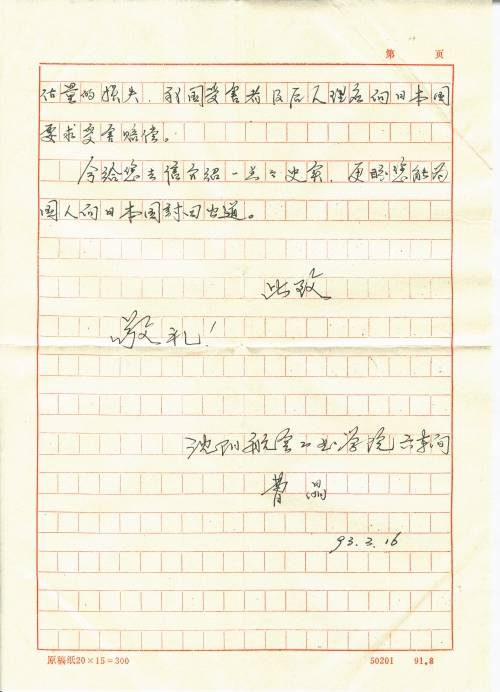 第 页
估量的损失，我国受害者及后人理应向日本国
要求受害赔偿。
今给您去信介绍一点点史实，更盼您能为
国人向日本国討回公道。
此致
敬礼！
沈阳航空工业学院六车间
曹晶
93.3.16
原稿纸20×15=300 50201 91.8